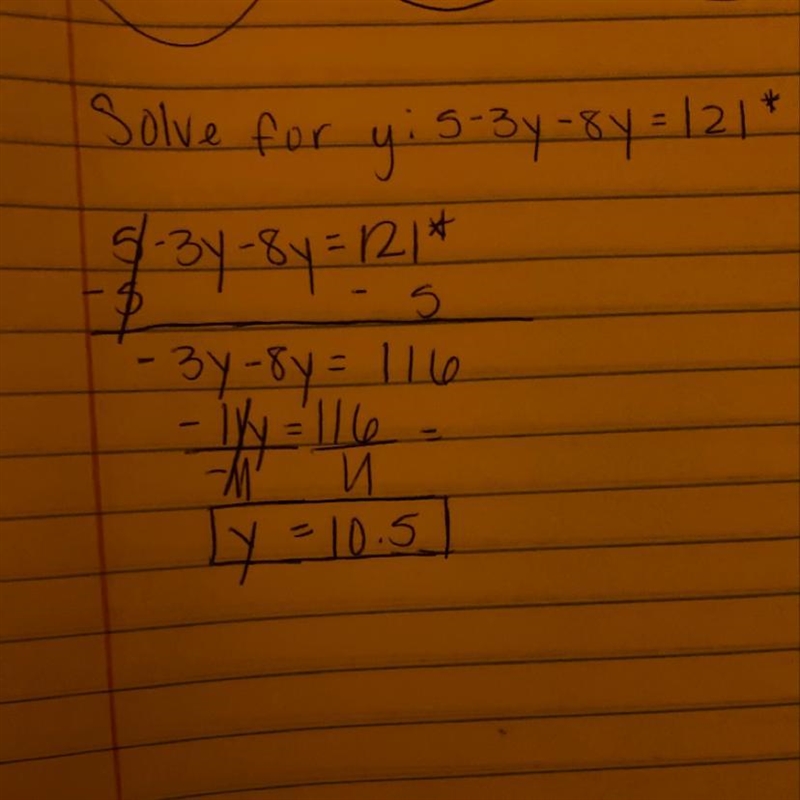 Solve for y: 5-3y-8y=121*
5-3y-8y=121*
-5 - 5
-3y-8y= 116
-11y = 116 =
-11 11
y = 10.5